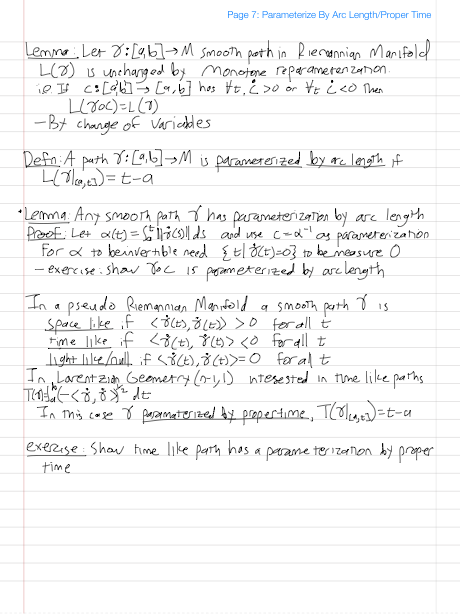 Page 7: Parameterize By Arc Length/Proper Time
Lemma: Let γ:[a,b]→M smooth path in Riemannian Manifold
L(γ) is unchanged by monotone reparameterization.
i.e. If c:[a',b']→[a,b] has ∀t, ċ>0 or ∀t ċ<0 then
L(γoc)=L(γ)
- By change of variables
Defn: A path γ:[a,b]→M is parameterized by arc length if
L(γ|[a,t])=t-a
Lemma: Any smooth path γ has parameterization by arc length
Proof: Let α(t)=∫ₐᵗ||γ̇(s)||ds and use c=α⁻¹ as parameterization
For α to be invertible need {t|γ̇(t)=0} to be measure 0
- exercise: show γoc is parameterized by arc length
In a pseudo Riemannian Manifold a smooth path γ is
space like if <γ̇(t),γ̇(t)> >0 for all t
time like if <γ̇(t),γ̇(t)> <0 for all t
light like/null if <γ̇(t),γ̇(t)>=0 for all t
In Lorentzian Geometry (n-1,1) interested in time like paths
T(γ)=∫ₐᵇ(-<γ̇,γ̇>)^½ dt
In this case γ parameterized by proper time, T(γ|[a,t])=t-a
exercise: Show time like path has a parameterization by proper
time